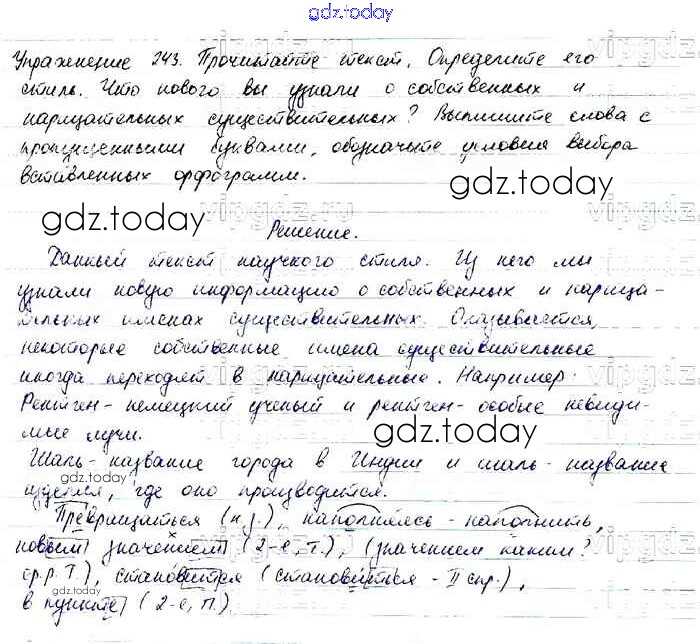 gdz.today
Упражнение 243. Прочитайте текст. Определите его
стиль. Что нового вы узнали о собственных и
нарицательных существительных? Выпишите слова с
пропущенными буквами, обозначьте условия выбора
вставленных орфограмм.
gdz.today
gdz.today
Решение.
Данный текст научного стиля. Из него мы
узнали новую информацию о собственных и нарица-
тельных именах существительных. Оказывается,
некоторые собственные имена существительные
иногда переходят в нарицательные. Например:
Рентген - немецкий ученый и рентген - особые невиди-
мые лучи.
gdz.today
Шаль - название города в Индии и шаль - название
изделия, где оно производится.
gdz.today
Превращаться (н.э.), наполняясь - наполнить,
новым значением (2-е, т.), (значением каким?
ср.р. Т.), становится (становиться - II спр.),
в пункте (2-е, П.)